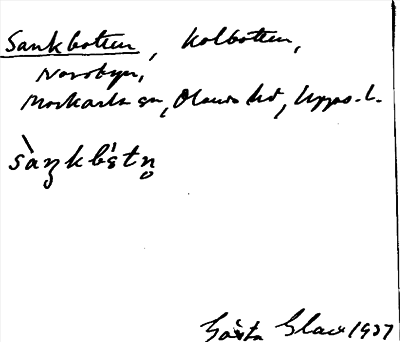 Sankbotten, Kolbotten,
Norrbyn,
Morkarla sn, Olands hd, Upps. l.
sàŋkbɨ́tn̥
Gösta Glav 1937